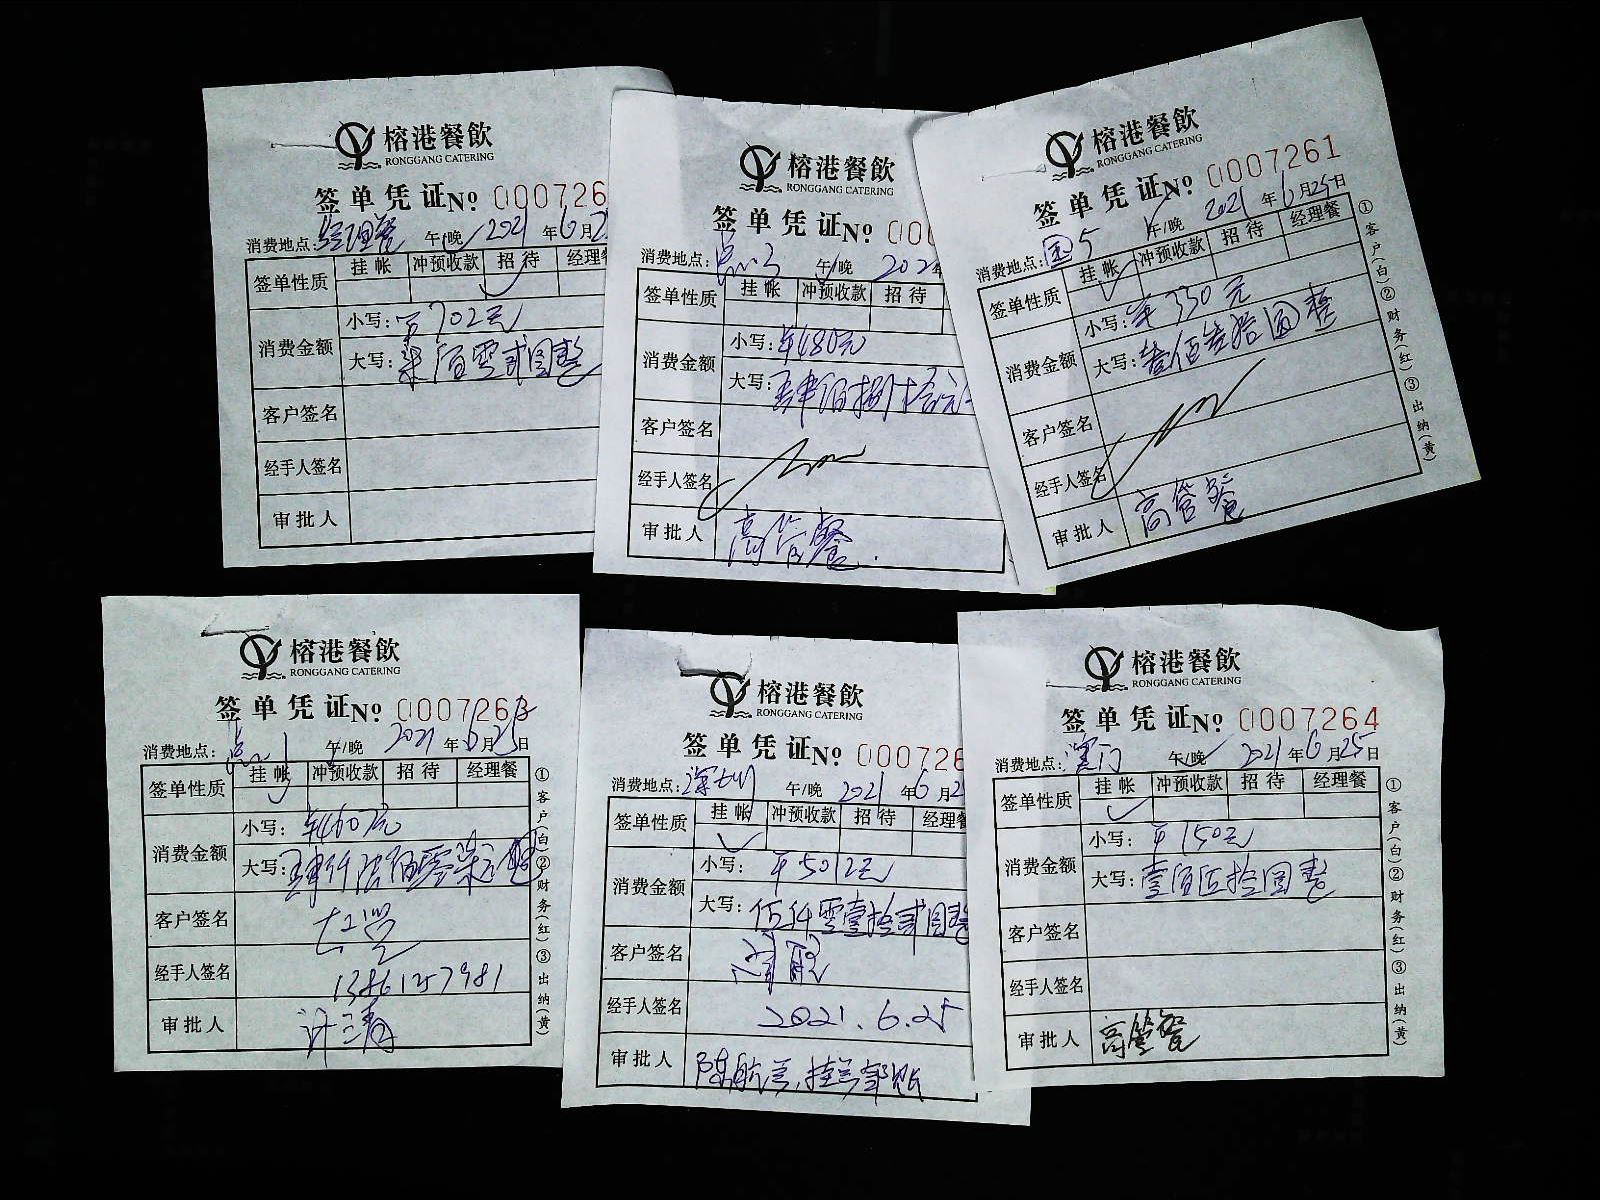 榕港餐飲
RONGGANG CATERING
签单凭证№ 000726
消费地点: 经理餐 午/晚 2021 年 6 月 2
签单性质 挂帐 冲预收款 招待 经理餐
消费金额 小写: ¥702元
大写: 柒佰零贰圆整
客户签名
经手人签名
审批人
榕港餐飲
RONGGANG CATERING
签单凭证№ 000
消费地点: 点心3 午/晚 202 年
签单性质 挂帐 冲预收款 招待
消费金额 小写: ¥480元
大写: 肆佰捌十
客户签名
经手人签名
审批人 高管餐.
榕港餐飲
RONGGANG CATERING
签单凭证№ 0007261
消费地点: 国5 午/晚 2021 年 6 月 25 日
签单性质 挂帐 冲预收款 招待 经理餐
消费金额 小写: ¥330元
大写: 叁佰叁拾圆整
客户签名
经手人签名
审批人 高管餐
①客户(白)②财务(红)③出纳(黄)
榕港餐飲
RONGGANG CATERING
签单凭证№ 0007263
消费地点: 点心1 午/晚 2021 年 6 月 25 日
签单性质 挂帐 冲预收款 招待 经理餐
消费金额 小写:
大写:
客户签名
经手人签名 13861257981
审批人
①客户(白)②财务(红)③出纳(黄)
榕港餐飲
RONGGANG CATERING
签单凭证№ 000726
消费地点: 深圳 午/晚 2021 年 6 月 2
签单性质 挂帐 冲预收款 招待 经理餐
消费金额 小写: ¥5012元
大写: 伍仟零壹拾贰圆整
客户签名
经手人签名 2021.6.25
审批人
榕港餐飲
RONGGANG CATERING
签单凭证№ 0007264
消费地点: 澳门 午/晚 2021 年 6 月 25 日
签单性质 挂帐 冲预收款 招待 经理餐
消费金额 小写: ¥150元
大写: 壹佰伍拾圆整
客户签名
经手人签名
审批人 高管餐
①客户(白)②财务(红)③出纳(黄)